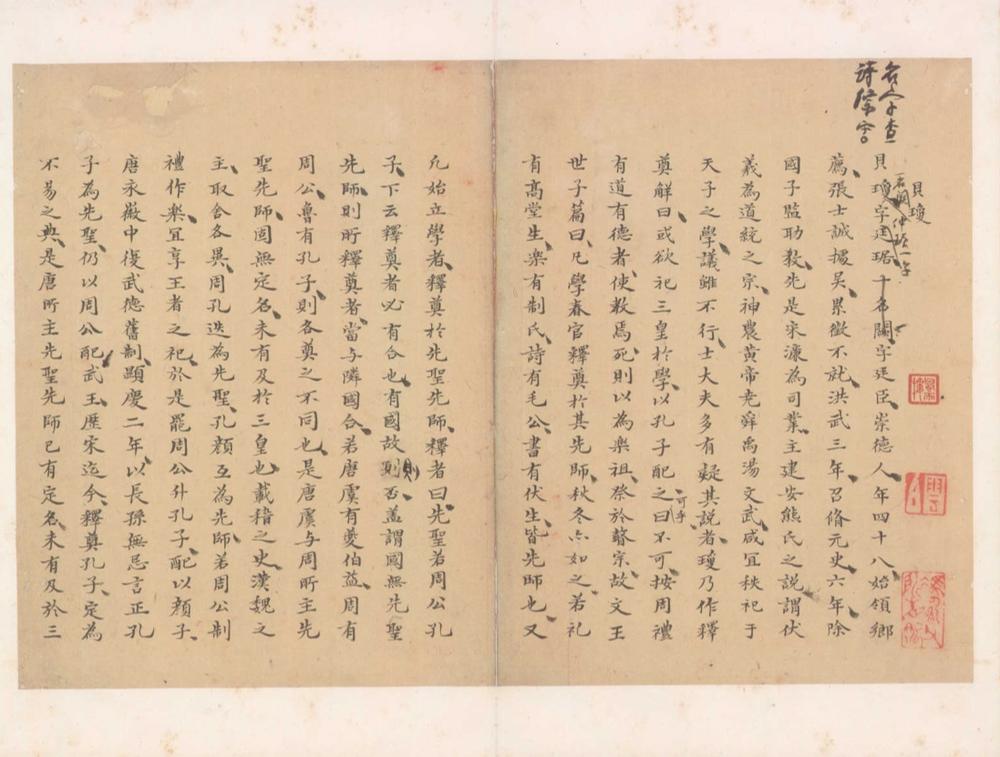 貝瓊
貝瓊字廷琚十名闕字廷臣崇德人年四十八始領鄉
薦張士誠據吳累徵不就洪武三年召脩元史六年除
國子監助教先是宋濂為司業主建安熊氏之説謂伏
義為道統之宗神農黄帝尭舜禹湯文武咸宜秩祀于
天子之學議雖不行士大夫多有疑其説者瓊乃作釋
奠解曰或欲祀三皇於學以孔子配之可乎曰不可按周禮
有道有德者使教焉死則以為樂祖祭於瞽宗故文王
世子篇曰凡學春官釋奠於其先師秋冬亦如之若礼
有高堂生樂有制氏詩有毛公書有伏生皆先師也又
凡始立學者釋奠於先聖先師釋者曰先聖若周公孔
子下云釋奠者必有合也有國故則否蓋謂國無先聖
先師則所釋奠者當与隣國合若唐虞有夔伯益周有
周公魯有孔子則各奠之不同也是唐虞与周所主先
聖先師固無定名未有及於三皇也載稽之史漢魏之
主取舍各異周孔迭為先聖孔顔互為先師若周公制
禮作樂宜享王者之祀於是罷周公升孔子配以顔子
唐永徽中復武德舊制顯慶二年以長孫無忌言正孔
子為先聖仍以周公配武王歷宋迄今釋奠孔子定為
不易之典是唐所主先聖先師已有定名未有及於三